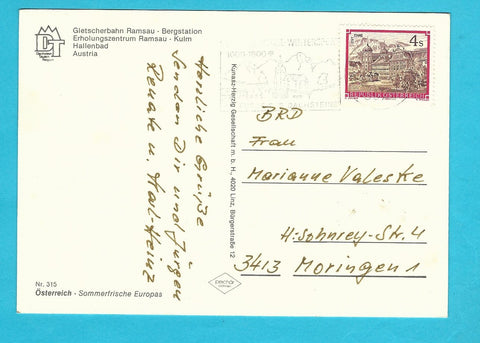 Gletscherbahn Ramsau - Bergstation
Erholungszentrum Ramsau - Kulm
Hallenbad
Austria
Herzliche Grüße
senden Dir und Jürgen
Renate u. Karl-Heinz
Nr. 315
Österreich - Sommerfrische Europas
Kunstau-Herzig Gesellschaft m. b. H., 4020 Linz, Bürgerstraße 12
4 s
REPUBLIK ÖSTERREICH
BRD
Frau
Marianne Valeske
H.-Sohnrey-Str. 4
3413 Moringen 1